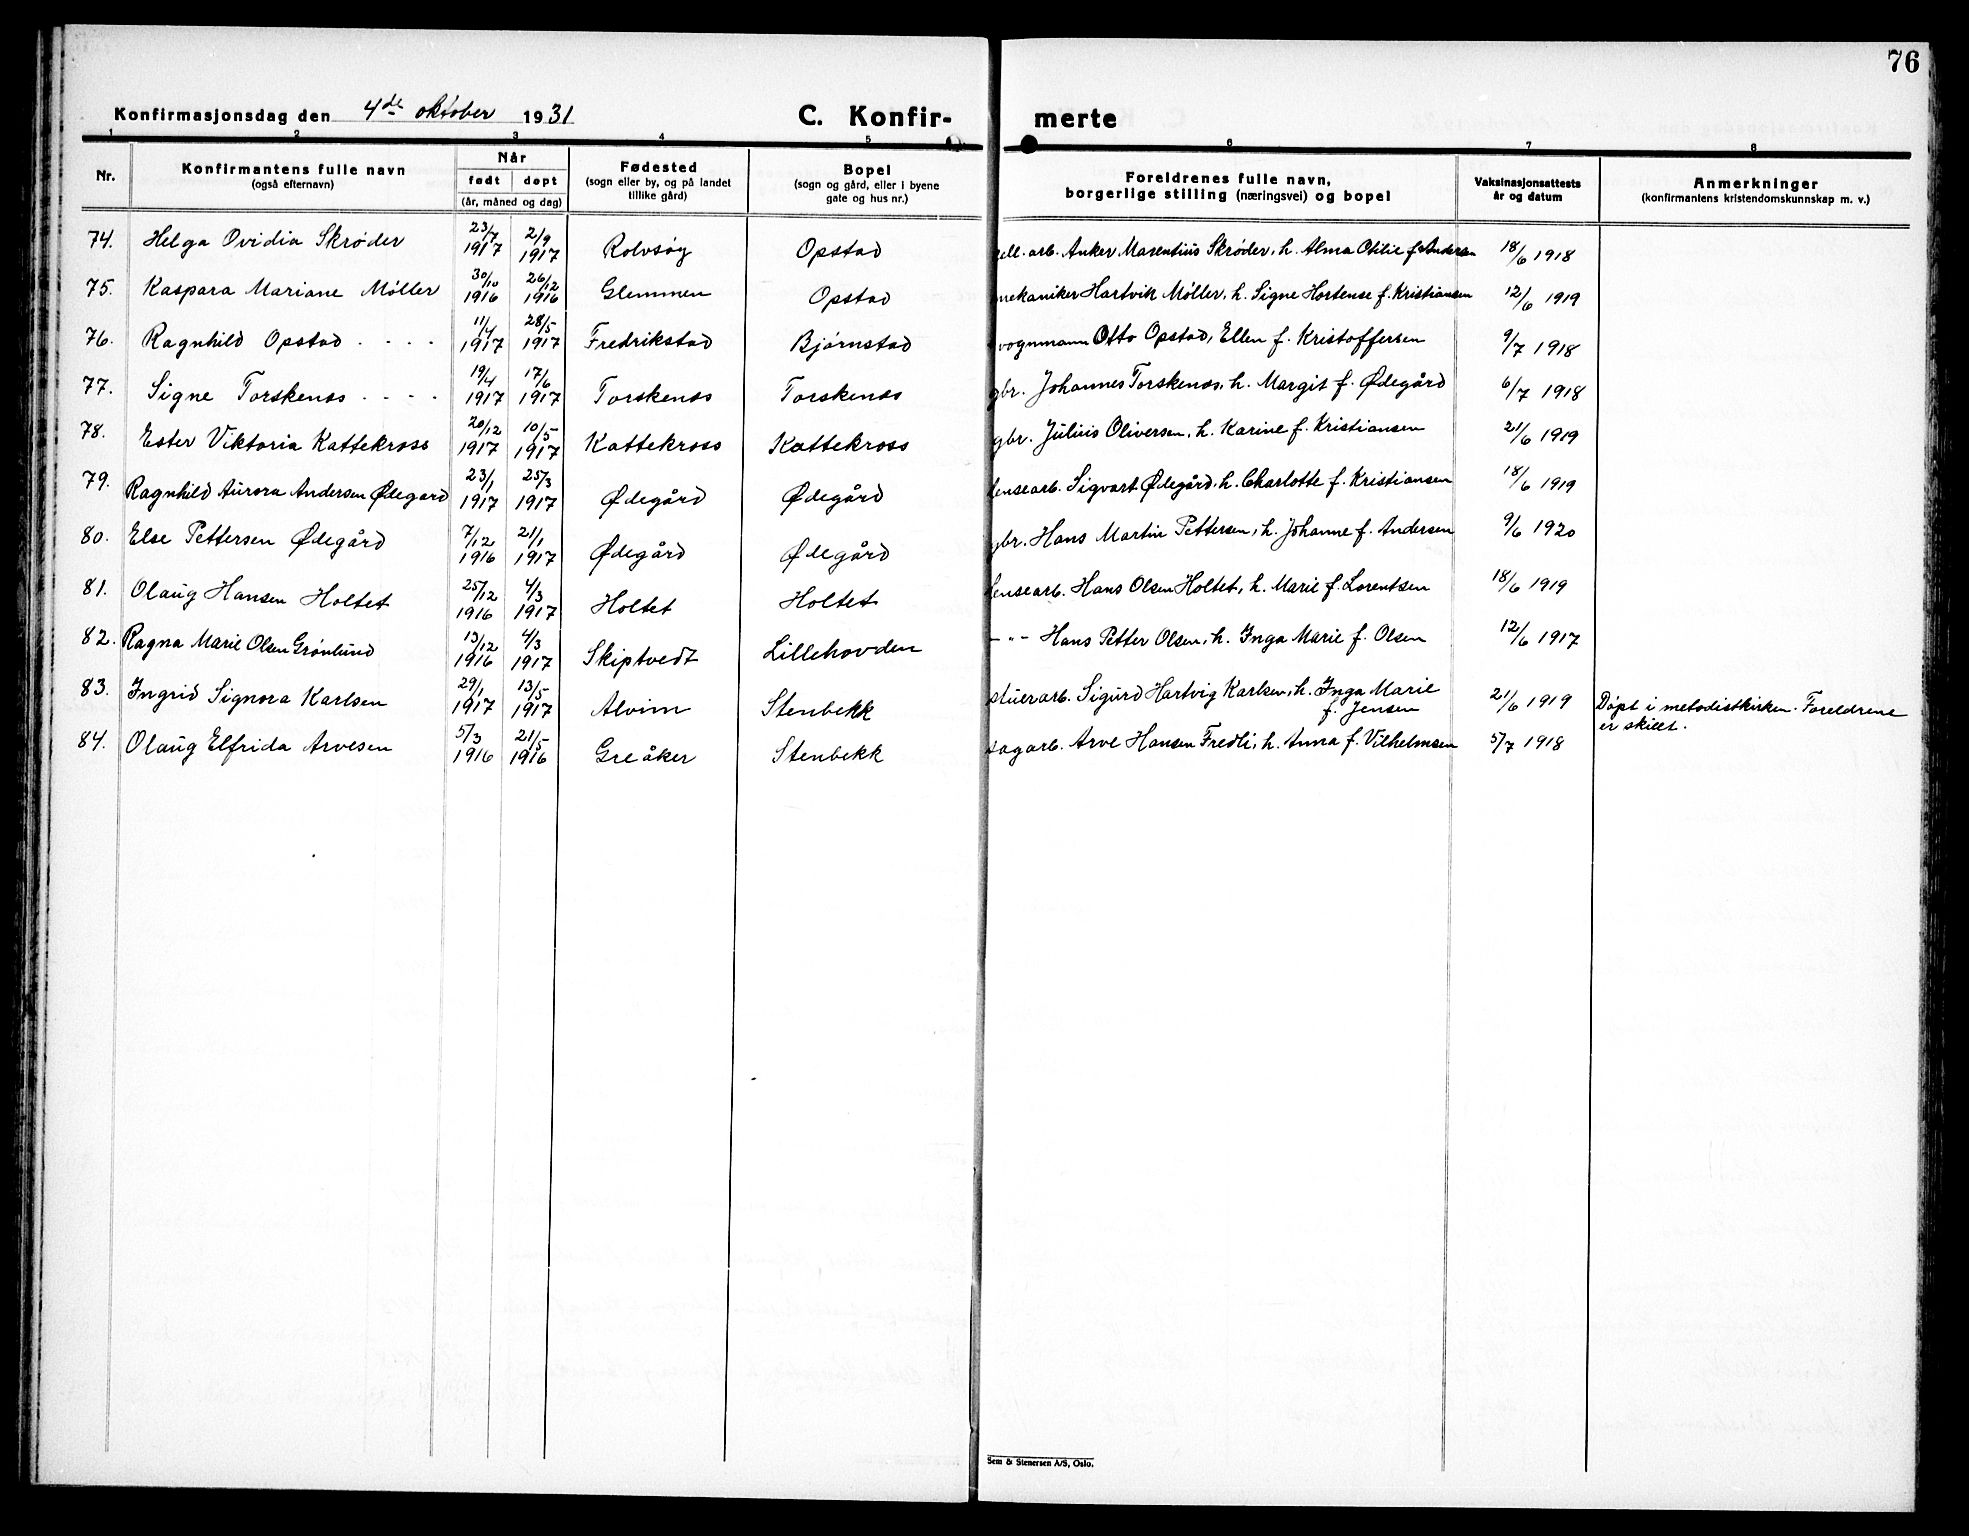 76
Konfirmasjonsdag den 4de oktober 1931 C. Konfir- merte
1 2 3 4 5 6 7 8
Nr. Konfirmantens fulle navn (også efternavn) Når født døpt (år, måned og dag) Fødested (sogn eller by, og på landet tillike gård) Bopel (sogn og gård, eller i byene gate og hus nr.) Foreldrenes fulle navn, borgerlige stilling (næringsvei) og bopel Vaksinasjonsattests år og datum Anmerkninger (konfirmantens kristendomskunnskap m. v.)
74. Helga Ovidia Skrøder 23/7 1917 2/9 1917 Rolvsøy Opstad cell. arb. Anker Marentius Skrøder, h. Alma Otilie f. Andersen 18/6 1918
75. Kaspara Mariane Møller 30/10 1916 26/12 1916 Glemmen Opstad mekaniker Hartvik Møller, h. Signe Hortense f. Kristiansen 12/6 1919
76. Ragnhild Opstad . . . . 11/4 1917 28/5 1917 Fredrikstad Bjørnstad vognmann Otto Opstad, Ellen f. Kristoffersen 9/7 1918
77. Signe Torskenæs . . . . 19/4 1917 17/6 1917 Torskenæs Torskenæs gbr. Johannes Torskenæs, h. Margit f. Ødegård 6/7 1918
78. Ester Viktoria Kattekross 20/12 1917 10/5 1917 Kattekross Kattekross gbr. Julius Oliversen, h. Karine f. Kristiansen 21/6 1919
79. Ragnhild Aurora Andersen Ødegård 23/1 1917 25/3 1917 Ødegård Ødegård lensearb. Sigvart Ødegård, h. Charlotte f. Kristiansen 18/6 1919
80. Else Pettersen Ødegård 7/12 1916 21/1 1917 Ødegård Ødegård gbr. Hans Martin Pettersen, h. Johanne f. Andersen 9/6 1920
81. Olaug Hansen Holtet 25/12 1916 4/3 1917 Holtet Holtet lensearb. Hans Olsen Holtet, h. Marie f. Lorentsen 18/6 1919
82. Ragna Marie Olsen Grønlund 13/12 1916 4/3 1917 Skiptvedt Lillehovden -"- Hans Petter Olsen, h. Inga Marie f. Olsen 12/6 1917
83. Ingrid Signora Karlsen 29/1 1917 13/5 1917 Alvim Stenbekk stuerarb. Sigurd Hartvig Karlsen, h. Inga Marie f. Jensen 21/6 1919 Døpt i metodistkirken. Foreldrene er skilt.
84. Olaug Elfrida Arvesen 5/3 1916 21/5 1916 Greåker Stenbekk sagarb. Arve Hansen Fredli, h. Anna f. Vilhelmsen 5/7 1918
Sem & Stenersen A/S, Oslo.